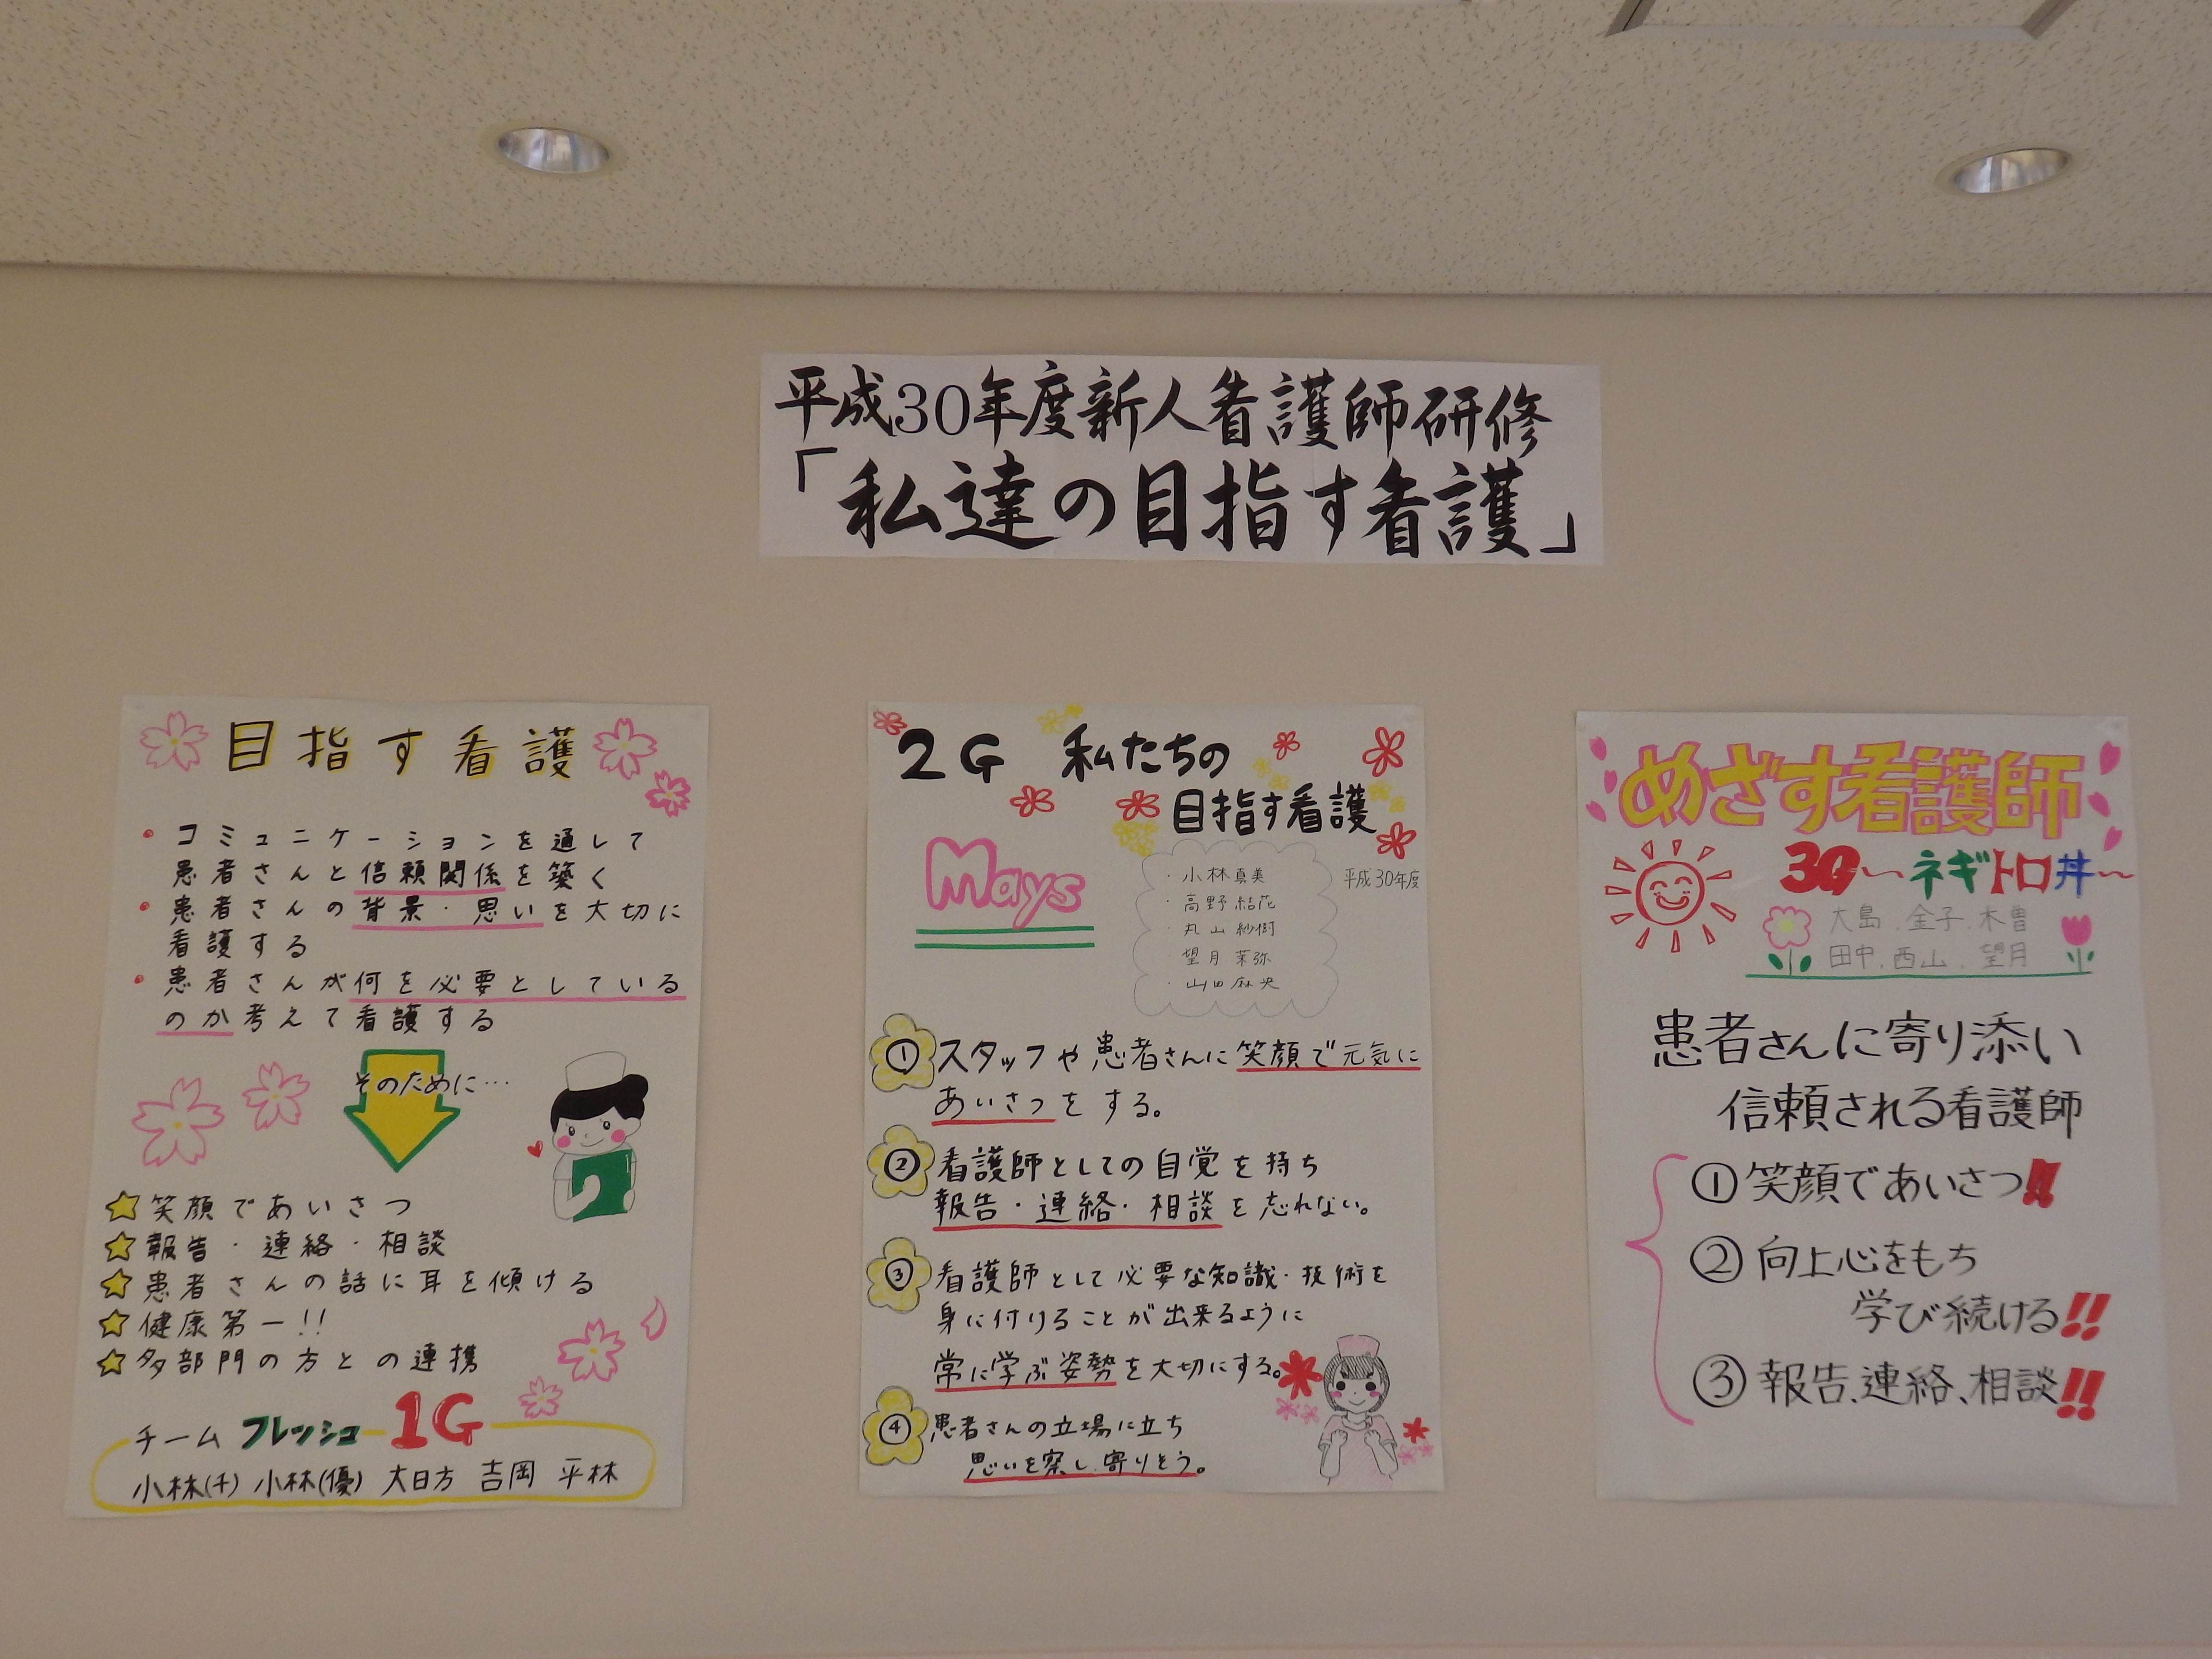 平成30年度新人看護師研修
「私達の目指す看護」
目指す看護
・コミュニケーションを通して
患者さんと信頼関係を築く
・患者さんの背景・思いを大切に
看護する
・患者さんが何を必要としている
のか考えて看護する
そのために…
☆笑顔であいさつ
☆報告・連絡・相談
☆患者さんの話に耳を傾ける
☆健康第一!!
☆多部門の方との連携
チームフレッシュ1G
小林(千) 小林(優) 大日方 吉岡 平林
2G 私たちの
目指す看護
Mays
平成30年度
・小林真美
・高野結花
・丸山紗樹
・望月茉弥
・山田麻央
①スタッフや患者さんに笑顔で元気に
あいさつをする。
②看護師としての自覚を持ち
報告・連絡・相談を忘れない。
③看護師として必要な知識・技術を
身に付けることが出来るように
常に学ぶ姿勢を大切にする。
④患者さんの立場に立ち
思いを察し寄りそう。
めざす看護師
3G〜ネギトロ丼〜
大島.金子.木曽
田中.西山.望月
患者さんに寄り添い
信頼される看護師
①笑顔であいさつ!!
②向上心をもち
学び続ける!!
③報告、連絡、相談!!